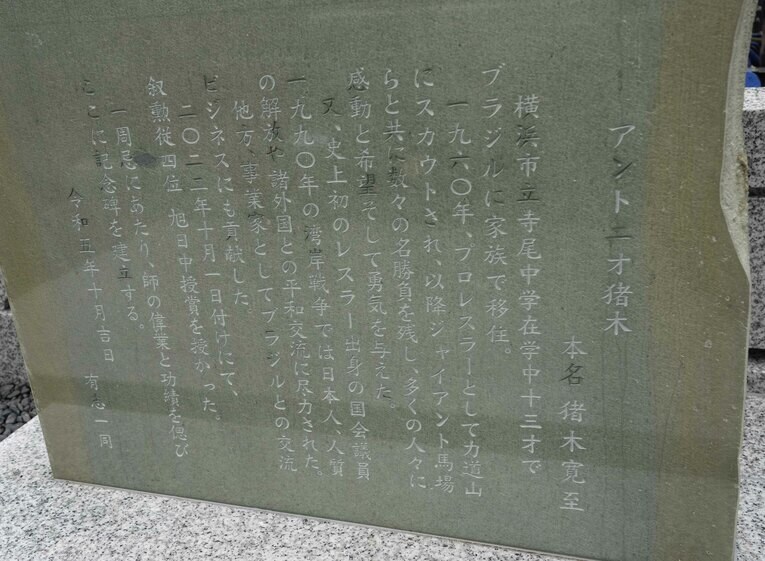 アントニオ猪木
本名 猪木寛至
横浜市立寺尾中学在学中十三才で
ブラジルに家族で移住。
一九六〇年、プロレスラーとして力道山
にスカウトされ、以降ジャイアント馬場
らと共に数々の名勝負を残し、多くの人々に
感動と希望そして勇気を与えた。
又、史上初のレスラー出身の国会議員
一九九〇年の湾岸戦争では日本人、人質
の解放や諸外国との平和交流に尽力された。
他方、事業家としてブラジルとの交流
ビジネスにも貢献した。
二〇二二年十月一日付けにて、
叙勲従四位 旭日中授賞を授かった。
一周忌にあたり、師の偉業と功績を偲び
ここに記念碑を建立する。
令和五年十月吉日 有志一同